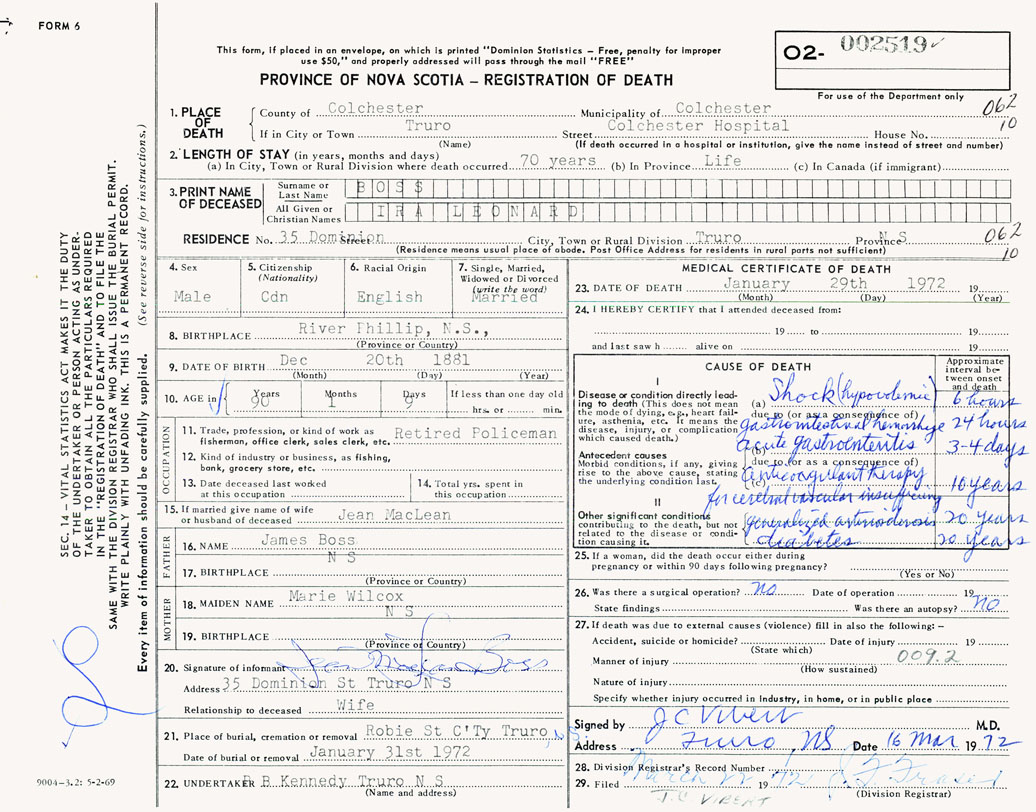 FORM 6
This form, if placed in an envelope, on which is printed "Dominion Statistics – Free, penalty for improper
use $50," and properly addressed will pass through the mail "FREE"
PROVINCE OF NOVA SCOTIA – REGISTRATION OF DEATH
02- 002519
For use of the Department only
1. PLACE OF DEATH
County of Colchester Municipality of Colchester 062
If in City or Town Truro Street Colchester Hospital House No. 10
(Name) (If death occurred in a hospital or institution, give the name instead of street and number)
2. LENGTH OF STAY (in years, months and days)
(a) In City, Town or Rural Division where death occurred 70 years (b) In Province Life (c) In Canada (if immigrant)
3. PRINT NAME OF DECEASED
Surname or Last Name BOSS
All Given or Christian Names IRA LEONARD
RESIDENCE No. 35 Dominion Street City, Town or Rural Division Truro Province N S 062
(Residence means usual place of abode. Post Office Address for residents in rural parts not sufficient) 10
4. Sex
Male
5. Citizenship
(Nationality)
Cdn
6. Racial Origin
English
7. Single, Married,
Widowed or Divorced
(write the word)
Married
8. BIRTHPLACE River Phillip, N.S.,
(Province or Country)
9. DATE OF BIRTH Dec 20th 1881
(Month) (Day) (Year)
10. AGE in Years Months Days If less than one day old
90 1 9 hrs. or min.
OCCUPATION
11. Trade, profession, or kind of work as Retired Policeman
fisherman, office clerk, sales clerk, etc.
12. Kind of industry or business, as fishing,
bank, grocery store, etc.
13. Date deceased last worked
at this occupation
14. Total yrs. spent in
this occupation
15. If married give name of wife
or husband of deceased Jean MacLean
FATHER
16. NAME James Boss
N S
17. BIRTHPLACE
(Province or Country)
MOTHER
18. MAIDEN NAME Marie Wilcox
N S
19. BIRTHPLACE
(Province or Country)
20. Signature of informant Boss
Address 35 Dominion St Truro N S
Relationship to deceased Wife
21. Place of burial, cremation or removal Robie St C'Ty Truro, N.S.
Date of burial or removal January 31st 1972
22. UNDERTAKER R B Kennedy Truro N S
(Name and address)
MEDICAL CERTIFICATE OF DEATH
23. DATE OF DEATH January 29th 1972 19
(Month) (Day) (Year)
24. I HEREBY CERTIFY that I attended deceased from:
19 to 19
and last saw h alive on 19
CAUSE OF DEATH
Approximate
interval be-
tween onset
and death
I
Disease or condition directly lead-
ing to death (This does not mean
the mode of dying, e.g., heart fail-
ure, asthenia, etc. It means the
disease, injury, or complication
which caused death.)
(a) Shock (hypovolemic) 6 hours
due to (or as a consequence of)
gastrointestinal hemorrhage 24 hours
Antecedent causes
Morbid conditions, if any, giving
rise to the above cause, stating
the underlying condition last.
(b) acute gastroenteritis 3-4 days
due to (or as a consequence of)
(c) anticoagulant therapy 10 years
for cerebral vascular insufficiency
II
Other significant conditions
contributing to the death, but not
related to the disease or condi-
tion causing it.
generalized arteriosclerosis 20 years
diabetes 20 years
25. If a woman, did the death occur either during
pregnancy or within 90 days following pregnancy?
(Yes or No)
26. Was there a surgical operation? No Date of operation 19
State findings Was there an autopsy? NO
27. If death was due to external causes (violence) fill in also the following: –
Accident, suicide or homicide? Date of injury 19
(State which)
Manner of injury 009.2
(How sustained)
Nature of injury
Specify whether injury occurred in Industry, in home, or in public place
Signed by J C Vibert M.D.
Address Truro, NS Date 16 Mar 1972
28. Division Registrar's Record Number
29. Filed March 22 1972 Fraser
J.C. VIBERT (Division Registrar)
SEC. 14 – VITAL STATISTICS ACT MAKES IT THE DUTY
OF THE UNDERTAKER OR PERSON ACTING AS UNDER-
TAKER TO OBTAIN ALL THE PARTICULARS REQUIRED
IN THE "REGISTRATION OF DEATH" AND TO FILE THE
SAME WITH THE DIVISION REGISTRAR WHO SHALL ISSUE THE BURIAL PERMIT.
WRITE PLAINLY WITH UNFADING INK. THIS IS A PERMANENT RECORD.
Every item of information should be carefully supplied. (See reverse side for instructions.)
9004-3.2: 5-2-69